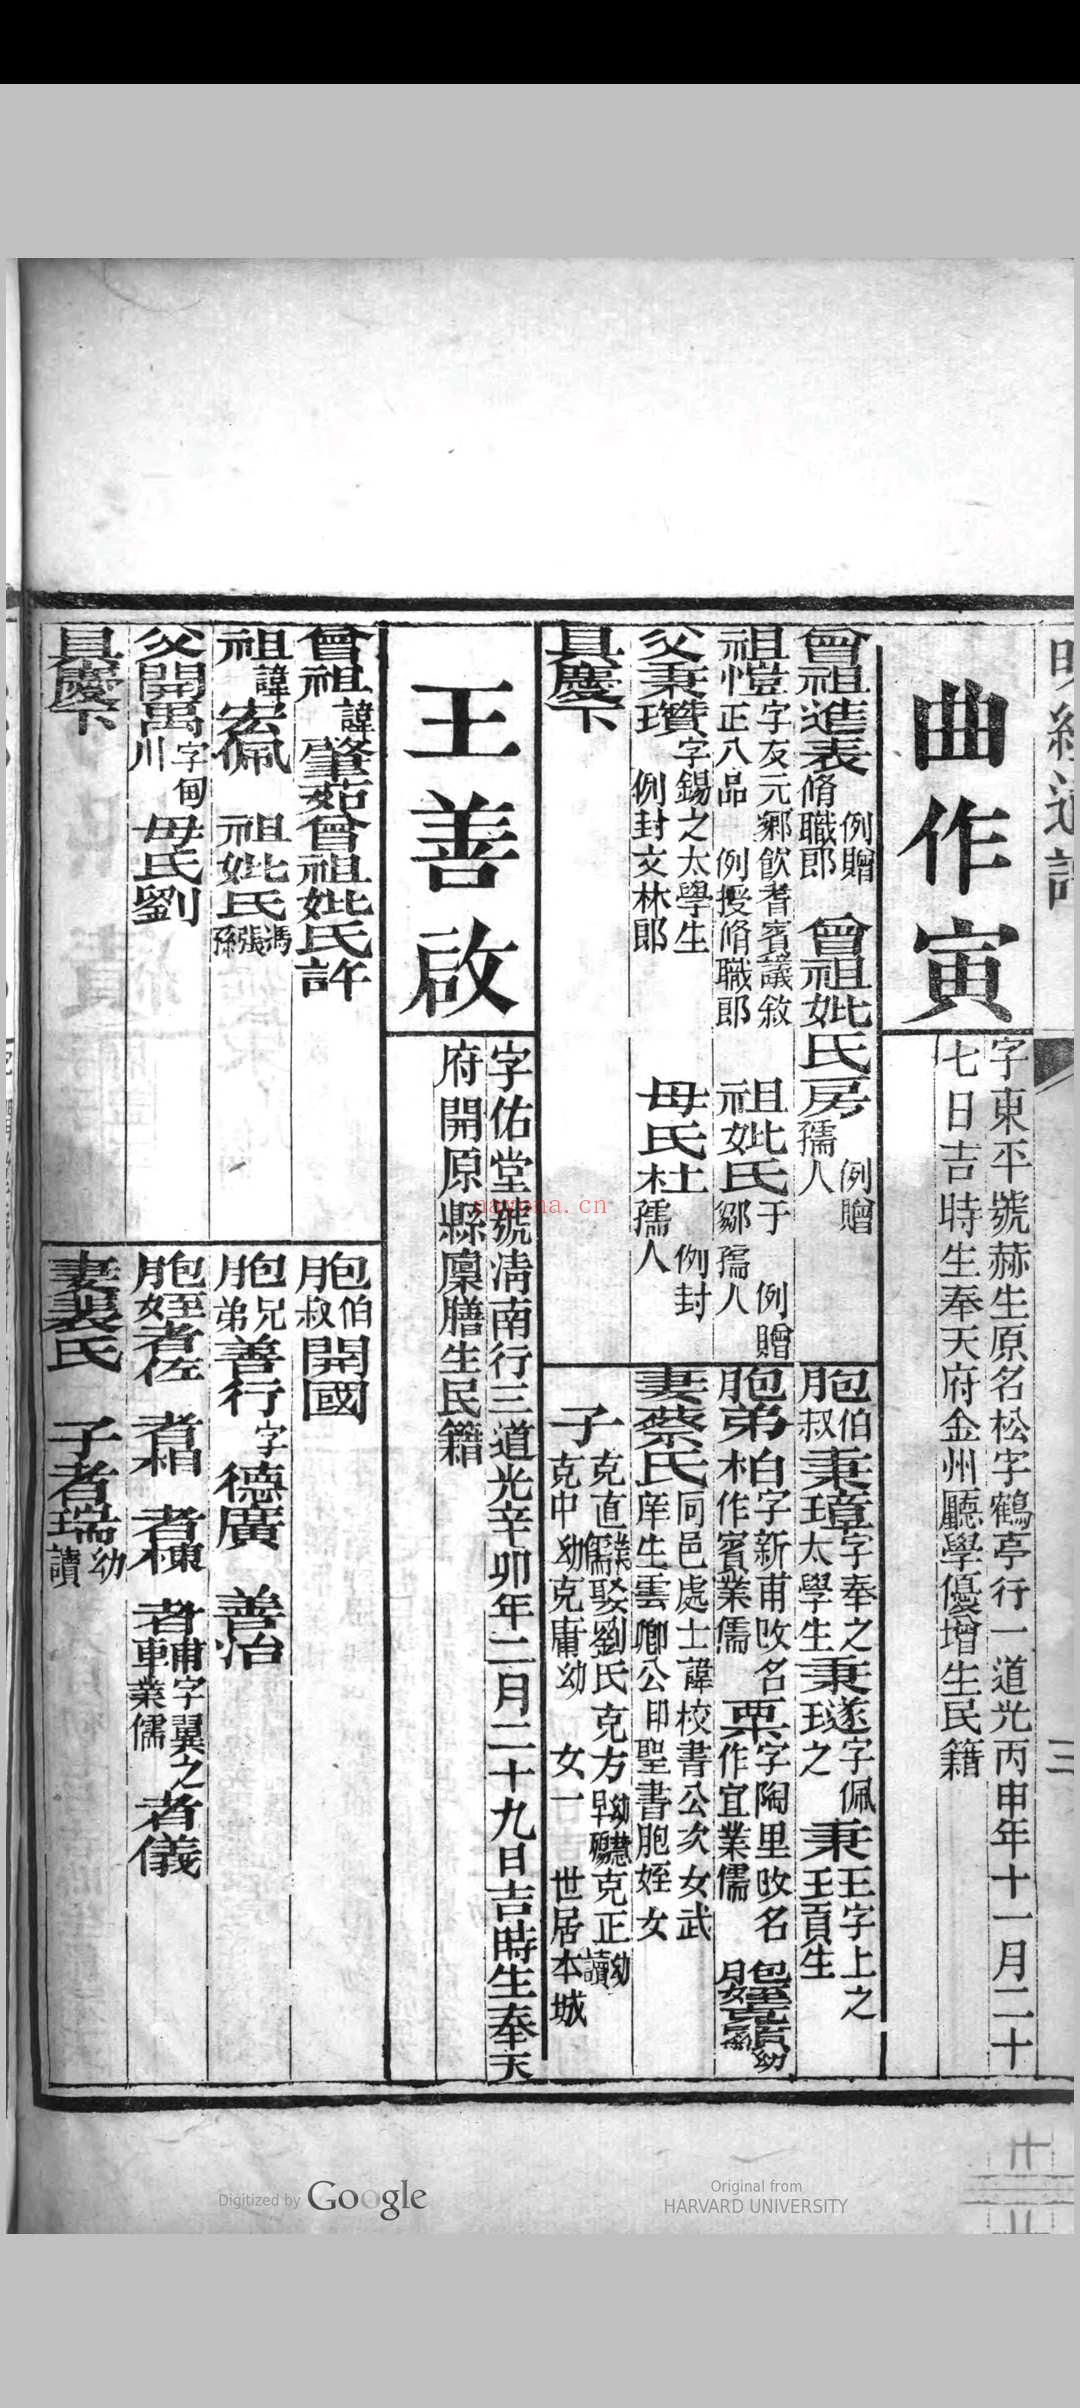 明經通譜
三
曲作寅
字東平號赫生原名松字鶴亭行一道光丙申年十一月二十
七日吉時生奉天府金州廳學優增生民籍
曾祖造表例贈脩職郎 曾祖妣氏房例贈孺人
祖愷字友元鄉飲耆賓議敘正八品例授脩職郎 祖妣氏于鄒例贈孺人
父秉瓚字錫之太學生例封文林郎 母氏杜例封孺人
具慶下
胞伯叔秉璋字奉之太學生秉璲字佩之秉玉字上之貢生
胞弟柏字新甫改名作賓業儒栗字陶里改名作宜業儒 胞姪
妻蔡氏同邑處士諱校書公次女武庠生雲卿公印聖書胞姪女
子克直業儒娶劉氏克方幼慧早殤克正幼讀克中幼克庸幼 女一 世居本城
王善啟
字佑堂號清南行三道光辛卯年二月二十九日吉時生奉天
府開原縣廩膳生民籍
曾祖諱肇茹曾祖妣氏許
祖諱宏佩 祖妣氏馮張孫
父開禺字甸川母氏劉
具慶下
胞伯叔開國
胞兄弟善行字德廣 善治
胞姪者佐 者相 者棟 者輔字翼之業儒 者儀
妻裴氏 子者瑞幼讀
nayona.cn
Digitized by Google
Original from
HARVARD UNIVERSITY